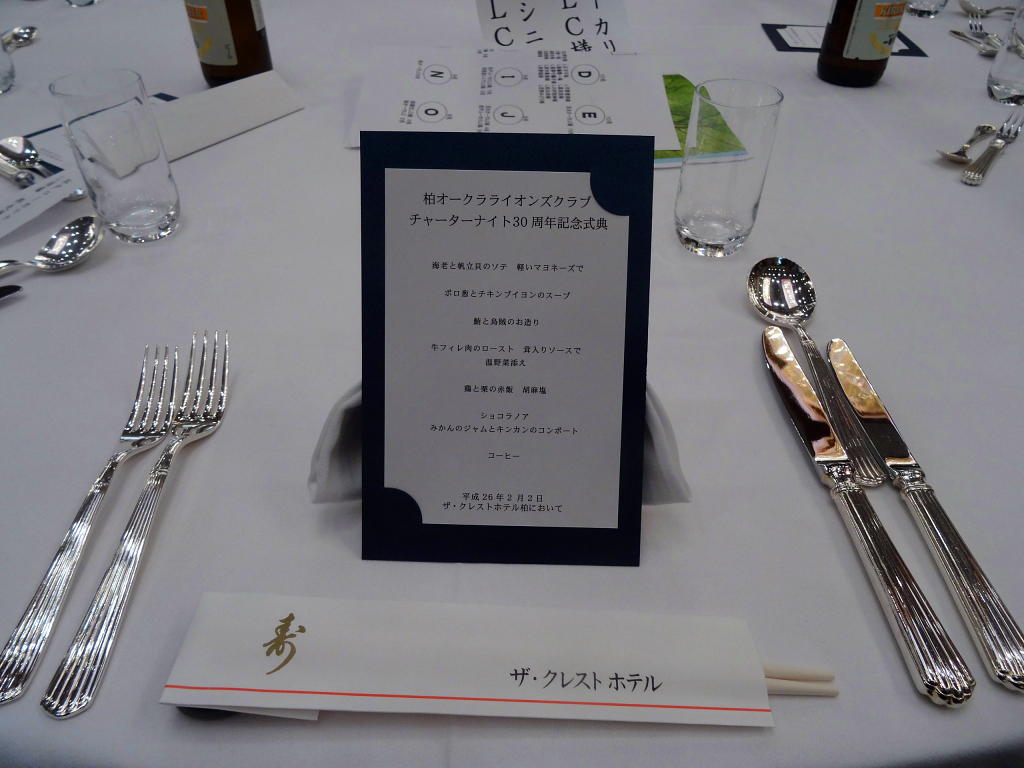 柏オークラライオンズクラブ
チャーターナイト30周年記念式典
海老と帆立貝のソテ　軽いマヨネーズで
ポロ葱とチキンブイヨンのスープ
鮪と烏賊のお造り
牛フィレ肉のロースト　茸入りソースで
温野菜添え
鶏と栗の赤飯　胡麻塩
ショコラノア
みかんのジャムとキンカンのコンポート
コーヒー
平成26年2月2日
ザ・クレストホテル柏において
寿
ザ・クレスト ホテル
N
I
D
O
J
E